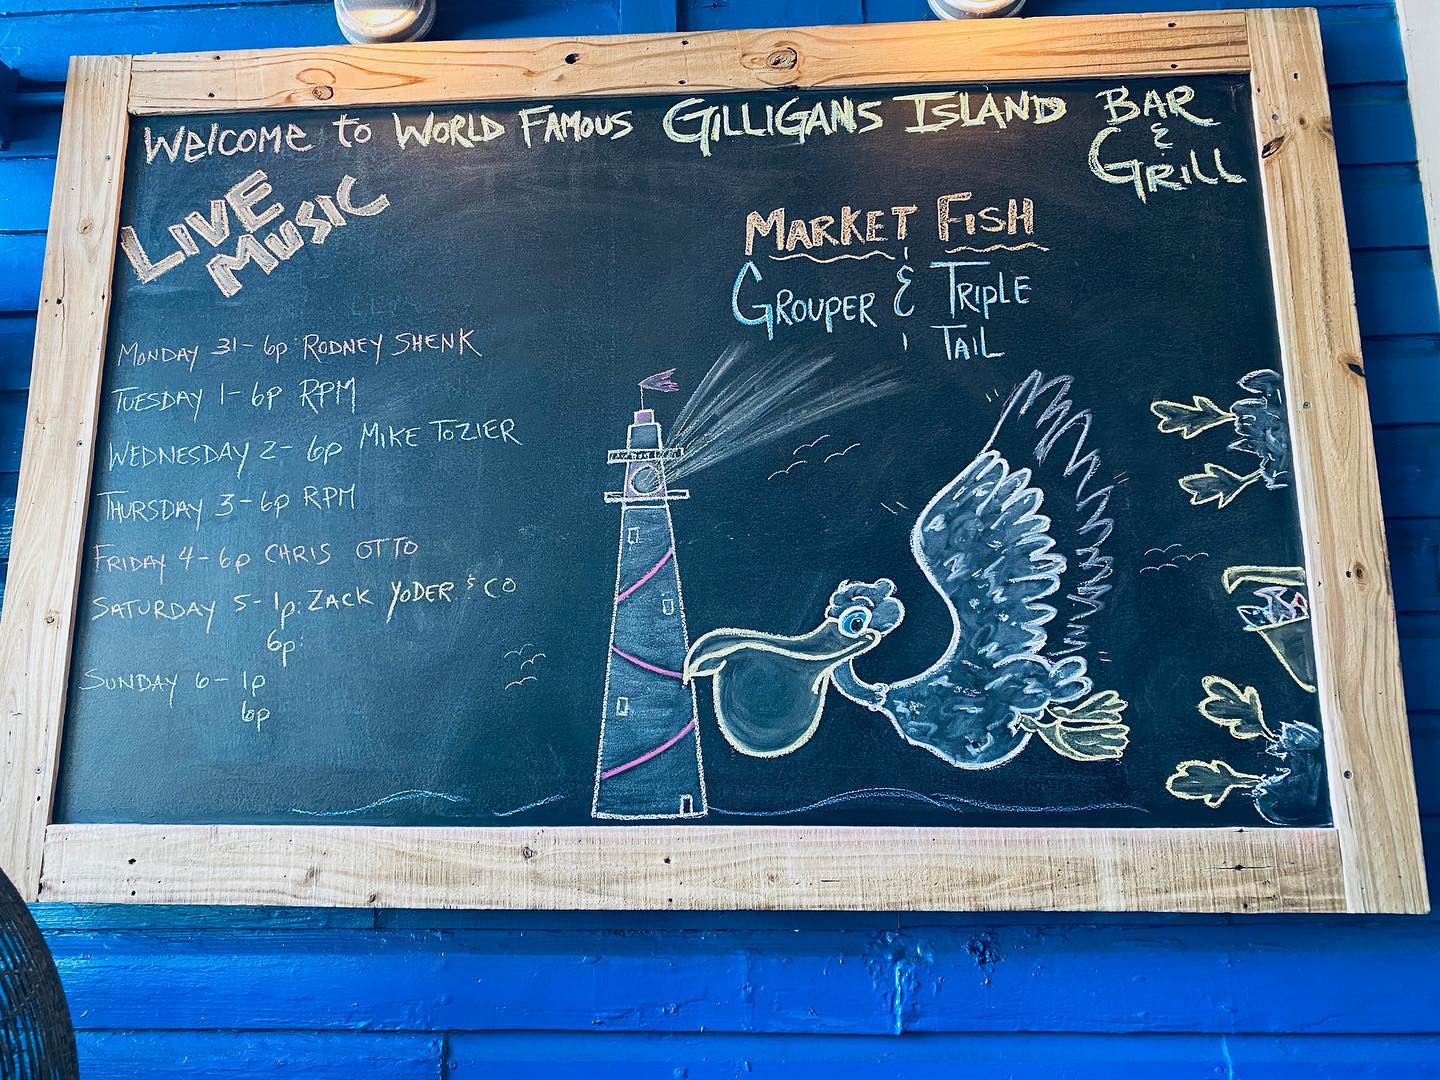 Welcome to WORLD FAMOUS GILLIGANS ISLAND BAR
&
GRILL
LIVE
MUSIC
MARKET FISH
GROUPER & TRIPLE
TAIL
MONDAY 31 - 6p: RODNEY SHENK
TUESDAY 1 - 6p RPM
WEDNESDAY 2 - 6p MIKE TOZIER
THURSDAY 3 - 6p RPM
FRIDAY 4 - 6p CHRIS OTTO
SATURDAY 5 - 1p: ZACK YODER & CO
6p:
SUNDAY 6 - 1p
6p